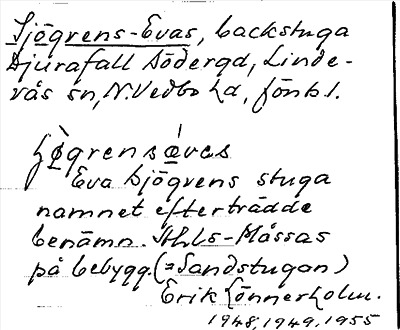 Sjögrens-Evas, backstuga
Djurafall Södergd, Linde-
vås sn, N. Vedbo hd, Jönk. l.
Eva Sjögrens stuga
namnet efterträdde
benämn. Sthls-Måssas
på bebygg. (=Sandstugan)
Erik Lönnerholm.
1948, 1949, 1955